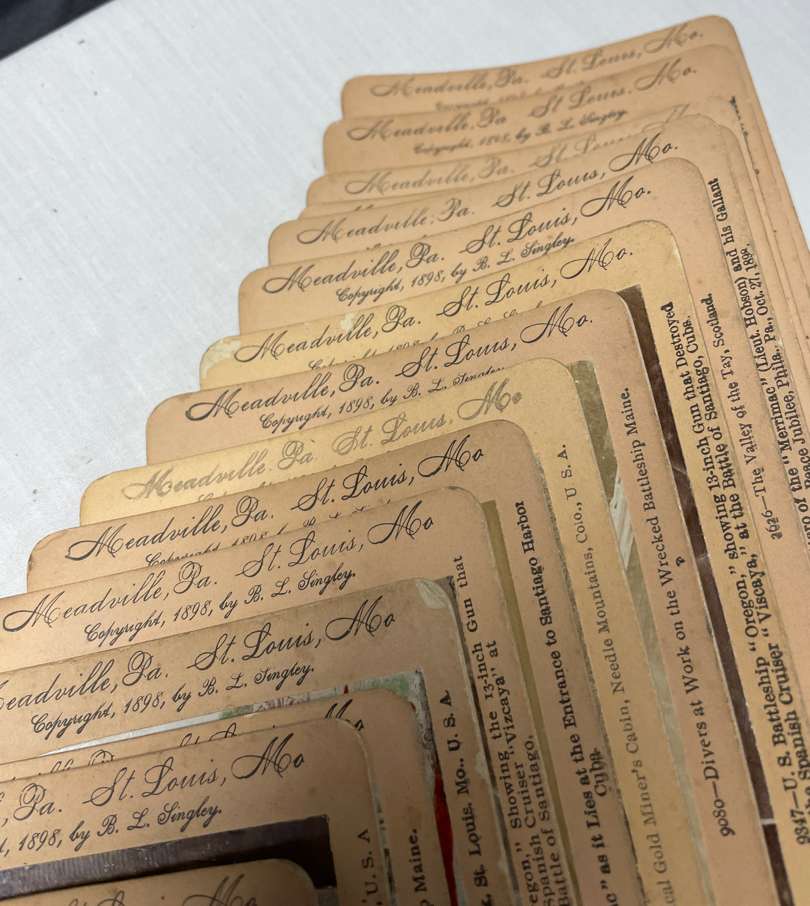 Meadville, Pa. St. Louis, Mo.
Meadville, Pa. St. Louis, Mo.
Copyright, 1898, by B. L. Singley.
Meadville, Pa. St. Louis
Meadville, Pa. St. Louis, Mo.
Meadville, Pa. St. Louis, Mo.
Copyright, 1898, by B. L. Singley.
Meadville, Pa. St. Louis, Mo.
Meadville, Pa. St. Louis, Mo.
Copyright, 1898, by B. L. Singley
Meadville, Pa. St. Louis, Mo
Meadville, Pa. St. Louis, Mo
Copyright, 1898, by B. L.
Meadville, Pa. St. Louis, Mo
Copyright, 1898, by B. L. Singley.
eadville, Pa. St. Louis, Mo
Copyright, 1898, by B. L. Singley.
, Pa. St. Louis, Mo
, 1898, by B. L. Singley.
U. S. A
p Maine.
, St. Louis, Mo., U. S. A.
egon," Showing the 13-inch Gun that
Spanish Cruiser "Vizcaya" at
Battle of Santiago,
" as it Lies at the Entrance to Santiago Harbor
Cuba
cal Gold Miner's Cabin, Needle Mountains, Colo., U. S. A.
9080—Divers at Work on the Wrecked Battleship Maine.
9347—U. S. Battleship "Oregon," showing 13-inch Gun that Destroyed
Spanish Cruiser "Viscaya," at the Battle of Santiago, Cuba.
2626—The Valley of the Tay, Scotland.
of the "Merrimac" (Lieut. Hobson) and his Gallant
Peace Jubilee, Phila., Pa., Oct. 27, 1898.